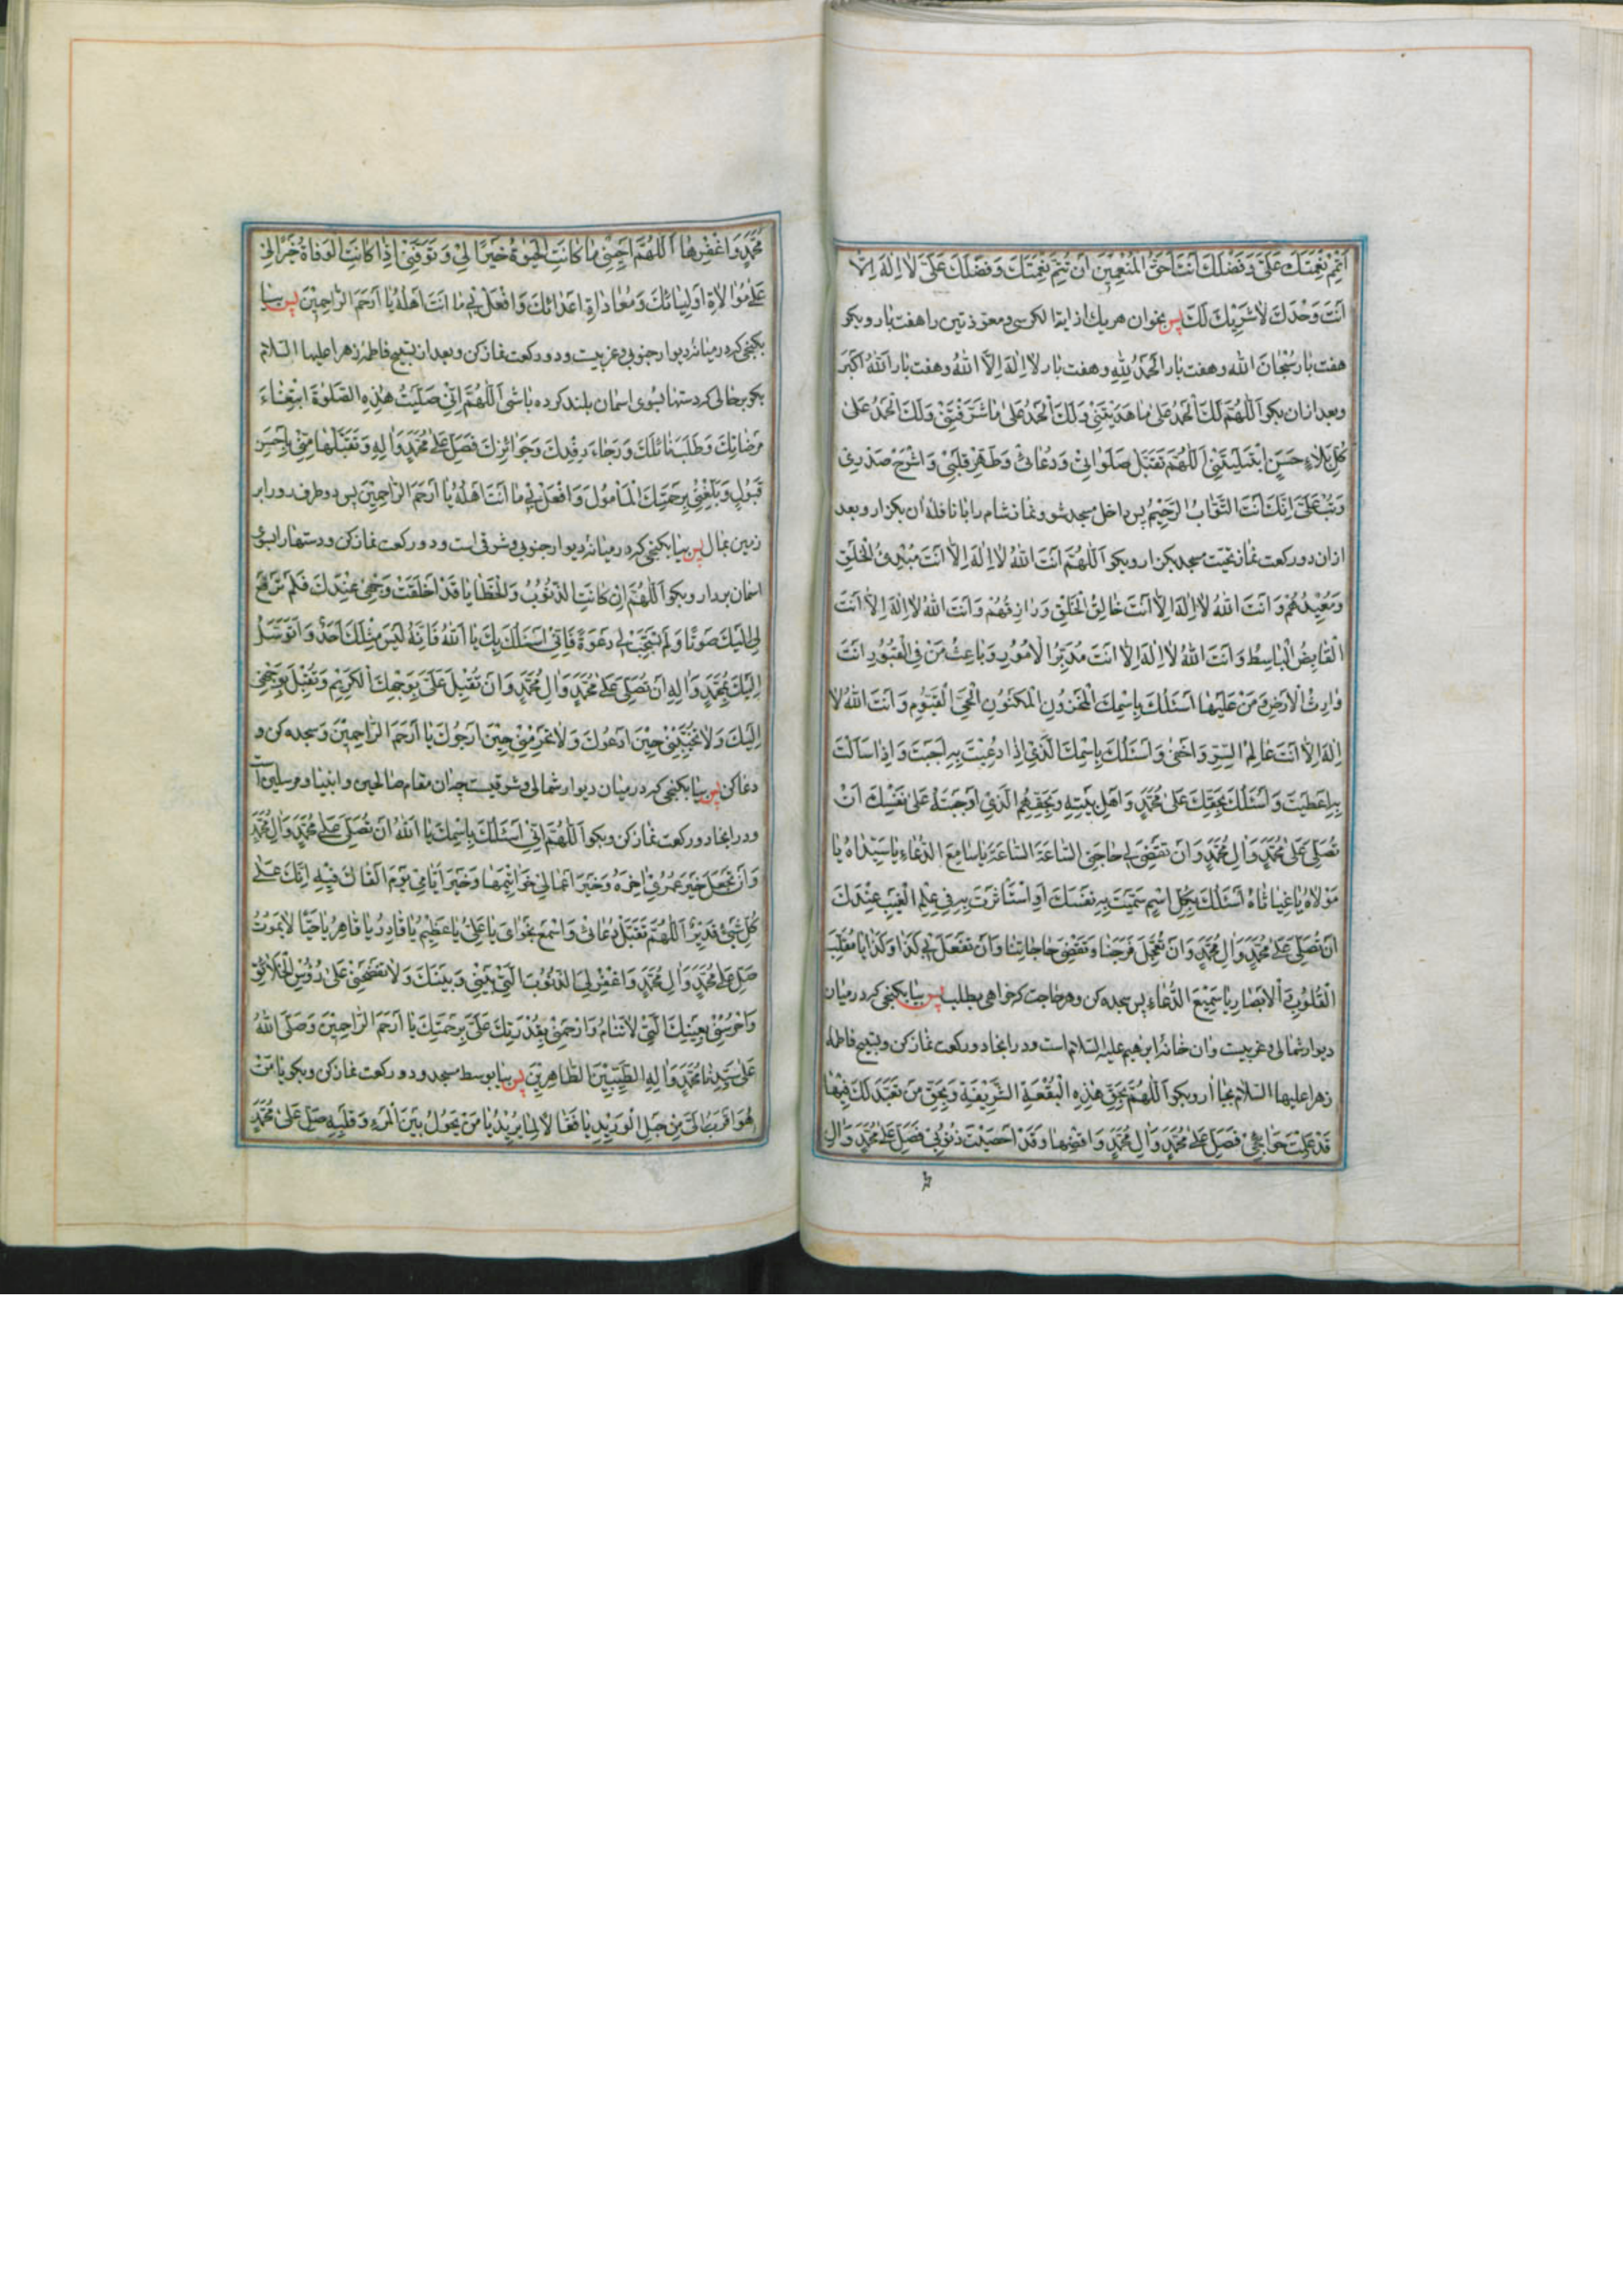 اَتْمِمْ نِعْمَتَكَ عَلَيَّ وَفَضْلَكَ اَنْتَ اَحَقُّ الْمُنْعِمِيْنَ اَنْ تُتِمَّ نِعْمَتَكَ وَفَضْلَكَ عَلَيَّ لَا اِلٰهَ اِلَّا
اَنْتَ وَحْدَكَ لَا شَرِيْكَ لَكَ پس بخوان هر یك از ایة الکرسی و معوذتین را هفت بار و بکو
هفت بار سُبْحَانَ اللهِ و هفت بار اَلْحَمْدُ لِلّٰهِ و هفت بار لَا اِلٰهَ اِلَّا اللهُ و هفت بار اَللهُ اَكْبَرُ
و بعد ازان بکو اَللّٰهُمَّ لَكَ الْحَمْدُ عَلٰى مَا هَدَيْتَنِيْ وَلَكَ الْحَمْدُ عَلٰى مَا شَرَّفْتَنِيْ وَلَكَ الْحَمْدُ عَلٰى
كُلِّ بَلَاءٍ حَسَنٍ ابْتَلَيْتَنِيْ اَللّٰهُمَّ تَقَبَّلْ صَلَوَاتِيْ وَدُعَائِيْ وَطَهِّرْ قَلْبِيْ وَاشْرَحْ صَدْرِيْ
وَتُبْ عَلَيَّ اِنَّكَ اَنْتَ التَّوَّابُ الرَّحِيْمُ پس داخل مسجد شو و نماز شام را با نافلۀ آن بکزار و بعد
ازان دو رکعت نماز تحیت مسجد بکزار و بکو اَللّٰهُمَّ اَنْتَ اللهُ لَا اِلٰهَ اِلَّا اَنْتَ مُبْدِئُ الْخَلْقِ
وَمُعِيْدُهُمْ وَاَنْتَ اللهُ لَا اِلٰهَ اِلَّا اَنْتَ خَالِقُ الْخَلْقِ وَرَازِقُهُمْ وَاَنْتَ اللهُ لَا اِلٰهَ اِلَّا اَنْتَ
الْقَابِضُ الْبَاسِطُ وَاَنْتَ اللهُ لَا اِلٰهَ اِلَّا اَنْتَ مُدَبِّرُ الْاُمُوْرِ وَبَاعِثُ مَنْ فِي الْقُبُوْرِ اَنْتَ
وَارِثُ الْاَرْضِ وَمَنْ عَلَيْهَا اَسْئَلُكَ بِاسْمِكَ الْمَخْزُوْنِ الْمَكْنُوْنِ الْحَيِّ الْقَيُّوْمِ وَاَنْتَ اللهُ لَا
اِلٰهَ اِلَّا اَنْتَ عَالِمُ السِّرِّ وَاَخْفٰى وَاَسْئَلُكَ بِاسْمِكَ الَّذِيْ اِذَا دُعِيْتَ بِهِ اَجَبْتَ وَاِذَا سُئِلْتَ
بِهِ اَعْطَيْتَ وَاَسْئَلُكَ بِحَقِّكَ عَلٰى مُحَمَّدٍ وَاَهْلِ بَيْتِهِ وَبِحَقِّهِمُ الَّذِيْ اَوْجَبْتَهُ عَلٰى نَفْسِكَ اَنْ
تُصَلِّيَ عَلٰى مُحَمَّدٍ وَاٰلِ مُحَمَّدٍ وَاَنْ تَقْضِيَ لِيْ حَاجَتِيْ السَّاعَةَ السَّاعَةَ يَا سَامِعَ الدُّعَاءِ يَا سَيِّدَاهُ يَا
مَوْلَاهُ يَا غِيَاثَاهُ اَسْئَلُكَ بِكُلِّ اسْمٍ سَمَّيْتَ بِهِ نَفْسَكَ اَوِ اسْتَأْثَرْتَ بِهِ فِيْ عِلْمِ الْغَيْبِ عِنْدَكَ
اَنْ تُصَلِّيَ عَلٰى مُحَمَّدٍ وَاٰلِ مُحَمَّدٍ وَاَنْ تُعَجِّلَ فَرَجَنَا وَتَقْضِيَ حَاجَاتِنَا وَاَنْ تَفْعَلَ بِيْ كَذَا وَكَذَا يَا مُقَلِّبَ
الْقُلُوْبِ وَالْاَبْصَارِ يَا سَمِيْعَ الدُّعَاءِ پس سجده کن و هر حاجت که خواهی بطلب پس بیا بکنجی که در میان
دیوار شمالی و غربیست و آن خانۀ ابرهیم علیه السلام است و در اینجا دو رکعت نماز کن و تسبیح فاطمۀ
زهرا علیها السلام بجا آر و بکو اَللّٰهُمَّ بِحَقِّ هٰذِهِ الْبُقْعَةِ الشَّرِيْفَةِ وَبِحَقِّ مَنْ تَعَبَّدَ لَكَ فِيْهَا
قَدْ عَلِمْتَ حَوَائِجِيْ فَصَلِّ عَلٰى مُحَمَّدٍ وَاٰلِ مُحَمَّدٍ وَاقْضِهَا وَقَدْ اَحْصَيْتَ ذُنُوْبِيْ فَصَلِّ عَلٰى مُحَمَّدٍ وَاٰلِ
مُحَمَّدٍ وَاغْفِرْهَا اَللّٰهُمَّ اَحْيِنِيْ مَا كَانَتِ الْحَيٰوةُ خَيْرًا لِيْ وَتَوَفَّنِيْ اِذَا كَانَتِ الْوَفَاةُ خَيْرًا لِيْ
عَلٰى مُوَالَاةِ اَوْلِيَائِكَ وَمُعَادَاةِ اَعْدَائِكَ وَافْعَلْ بِيْ مَا اَنْتَ اَهْلُهُ يَا اَرْحَمَ الرَّاحِمِيْنَ پس بیا
بکنجی که در میانۀ دیوار جنوبی و غربیست و دو رکعت نماز کن و بعد از تسبیح فاطمۀ زهرا علیها السلام
بکو بر حالی که دستها بسوی اسمان بلند کرده باشی اَللّٰهُمَّ اِنِّيْ صَلَّيْتُ هٰذِهِ الصَّلٰوةَ ابْتِغَاءَ
مَرْضَاتِكَ وَطَلَبَ نَائِلِكَ وَرَجَاءَ رِفْدِكَ وَجَوَائِزِكَ فَصَلِّ عَلٰى مُحَمَّدٍ وَاٰلِهِ وَتَقَبَّلْهَا مِنِّيْ بِاَحْسَنِ
قَبُوْلٍ وَبَلِّغْنِيْ بِرَحْمَتِكَ الْمَأْمُوْلَ وَافْعَلْ بِيْ مَا اَنْتَ اَهْلُهُ يَا اَرْحَمَ الرَّاحِمِيْنَ پس دو طرف رو را بر
زمین بمال پس بیا بکنجی که در میانۀ دیوار جنوبی و شرقی است و دو رکعت نماز کن و دستها را بسوی
اسمان بردار و بکو اَللّٰهُمَّ اِنْ كَانَتِ الذُّنُوْبُ وَالْخَطَايَا قَدْ اَخْلَقَتْ وَجْهِيْ عِنْدَكَ فَلَمْ تَرْفَعْ
لِيْ اِلَيْكَ صَوْتًا وَلَمْ تَسْتَجِبْ لِيْ دَعْوَةً فَاِنِّيْ اَسْئَلُكَ بِكَ يَا اَللهُ فَاِنَّهُ لَيْسَ مِثْلَكَ اَحَدٌ وَاَتَوَسَّلُ
اِلَيْكَ بِمُحَمَّدٍ وَاٰلِهِ اَنْ تُصَلِّيَ عَلٰى مُحَمَّدٍ وَاٰلِ مُحَمَّدٍ وَاَنْ تُقْبِلَ عَلَيَّ بِوَجْهِكَ الْكَرِيْمِ وَتُقْبِلَ بِوَجْهِيْ
اِلَيْكَ وَلَا تُخَيِّبْنِيْ حِيْنَ اَدْعُوْكَ وَلَا تَحْرِمْنِيْ حِيْنَ اَرْجُوْكَ يَا اَرْحَمَ الرَّاحِمِيْنَ و سجده کن و
دعا کن پس بیا بکنجی که در میان دیوار شمالی و شرقیست چه آن مقام صالحین و انبیا و مرسلین است
و در اینجا دو رکعت نماز کن و بکو اَللّٰهُمَّ اِنِّيْ اَسْئَلُكَ بِاسْمِكَ يَا اَللهُ اَنْ تُصَلِّيَ عَلٰى مُحَمَّدٍ وَاٰلِ مُحَمَّدٍ
وَاَنْ تَجْعَلَ خَيْرَ عُمُرِيْ اٰخِرَهُ وَخَيْرَ اَعْمَالِيْ خَوَاتِيْمَهَا وَخَيْرَ اَيَّامِيْ يَوْمَ اَلْقَاكَ فِيْهِ اِنَّكَ عَلٰى
كُلِّ شَيْئٍ قَدِيْرٌ اَللّٰهُمَّ تَقَبَّلْ دُعَائِيْ وَاسْمَعْ نَجْوَايَ يَا عَلِيُّ يَا عَظِيْمُ يَا قَادِرُ يَا قَاهِرُ يَا حَيًّا لَا يَمُوْتُ
صَلِّ عَلٰى مُحَمَّدٍ وَاٰلِ مُحَمَّدٍ وَاغْفِرْ لِيَ الذُّنُوْبَ الَّتِيْ بَيْنِيْ وَبَيْنَكَ وَلَا تَفْضَحْنِيْ عَلٰى رُؤُسِ الْخَلَائِقِ
وَاحْرُسْنِيْ بِعَيْنِكَ الَّتِيْ لَا تَنَامُ وَارْحَمْنِيْ بِقُدْرَتِكَ عَلَيَّ بِرَحْمَتِكَ يَا اَرْحَمَ الرَّاحِمِيْنَ وَصَلَّى اللهُ
عَلٰى سَيِّدِنَا مُحَمَّدٍ وَاٰلِهِ الطَّيِّبِيْنَ الطَّاهِرِيْنَ پس بیا بوسط مسجد و دو رکعت نماز کن و بکو يَا مَنْ
هُوَ اَقْرَبُ اِلَيَّ مِنْ حَبْلِ الْوَرِيْدِ يَا فَعَّالًا لِمَا يُرِيْدُ يَا مَنْ يَحُوْلُ بَيْنَ الْمَرْءِ وَقَلْبِهِ صَلِّ عَلٰى مُحَمَّدٍ